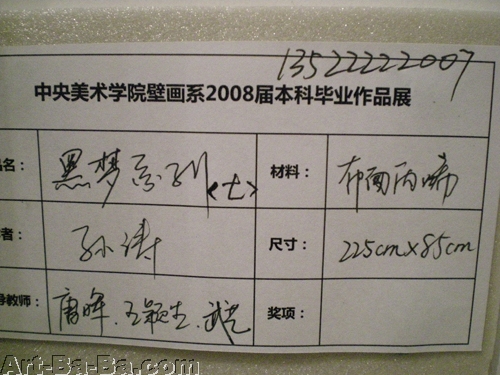 13522222007
中央美术学院壁画系2008届本科毕业作品展
品名: 黑梦系列<七> 材料: 布面丙烯
者: 孙涛 尺寸: 225cm×85cm
导教师: 唐晖.王颖生.武艺 奖项:
Art-Ba-Ba.com Art-Ba-Ba.com